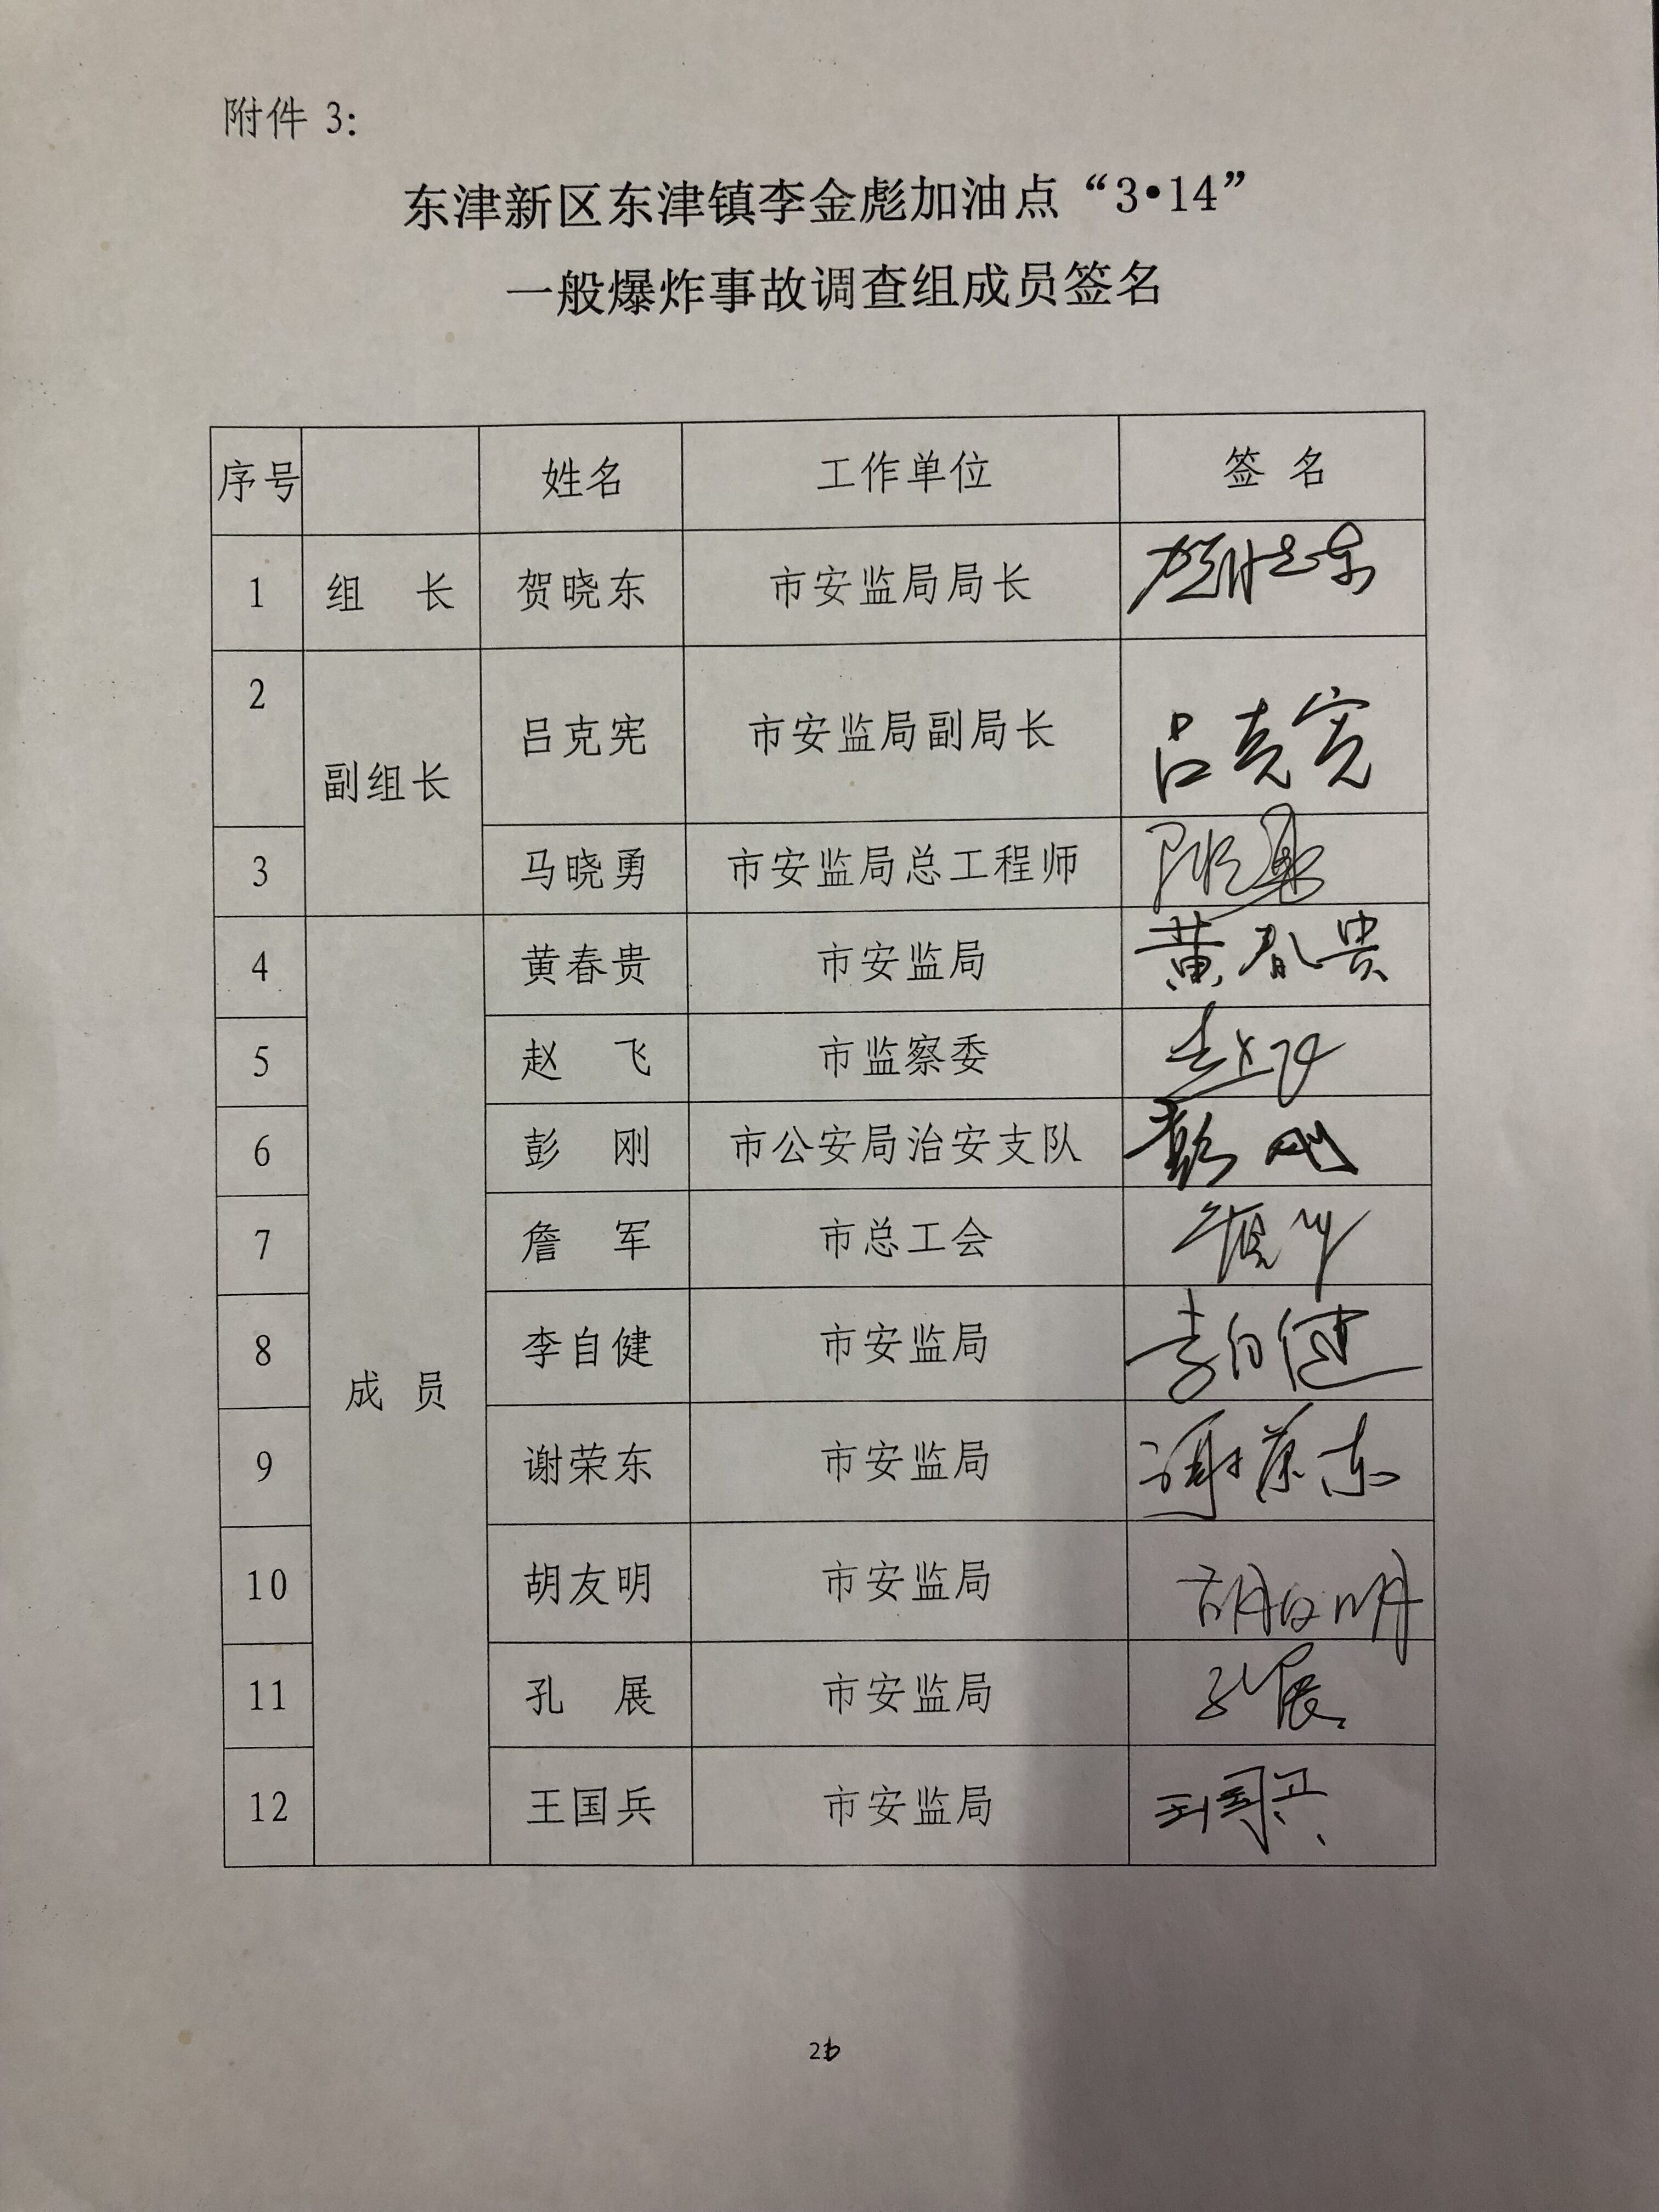 附件 3:
东津新区东津镇李金彪加油点“3•14”
一般爆炸事故调查组成员签名
序号 姓名 工作单位 签 名
1 组 长 贺晓东 市安监局局长 贺晓东
2 副组长 吕克宪 市安监局副局长 吕克宪
3 马晓勇 市安监局总工程师
4 成 员 黄春贵 市安监局 黄春贵
5 赵 飞 市监察委 赵飞
6 彭 刚 市公安局治安支队 彭刚
7 詹 军 市总工会
8 李自健 市安监局 李自健
9 谢荣东 市安监局 谢荣东
10 胡友明 市安监局 胡友明
11 孔 展 市安监局 孔展
12 王国兵 市安监局 王国兵